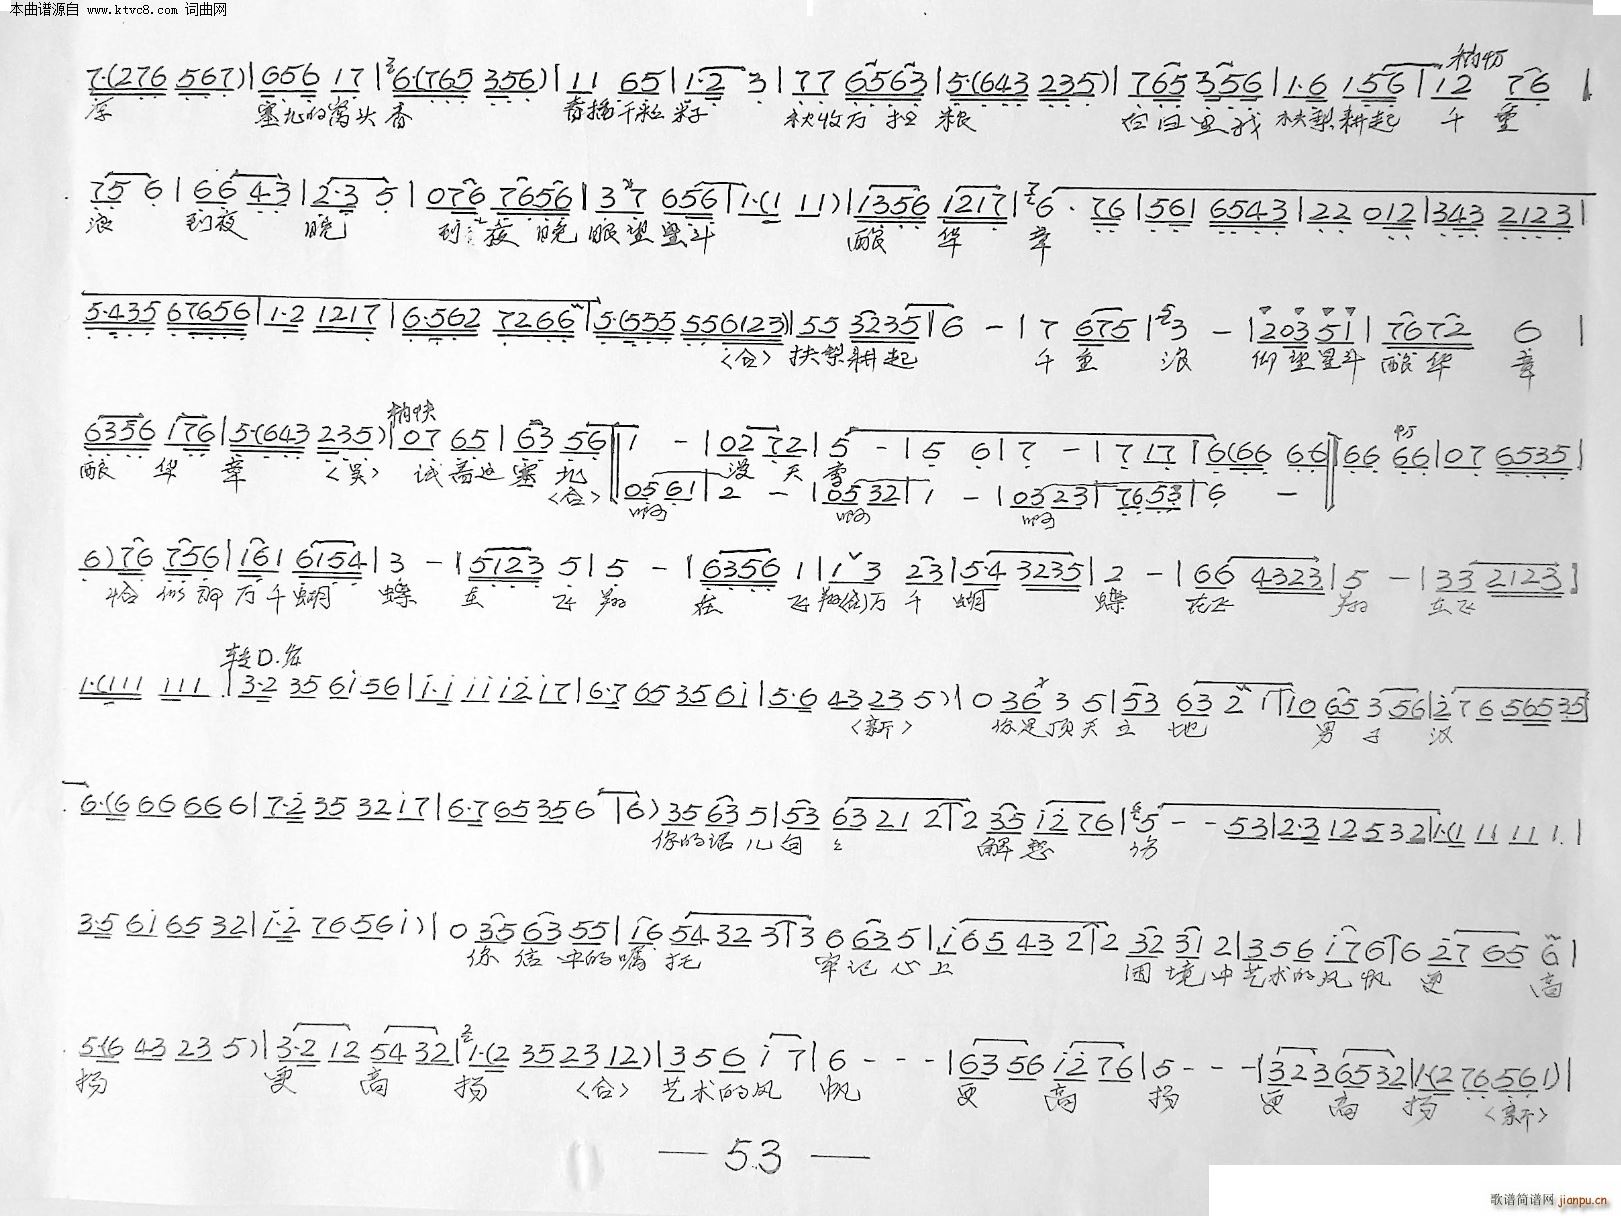 本曲谱源自 www.ktvc8.com 词曲网
稍切
7·(276 567)|656 17|6·(765 356)|11 65|1·2 3|77 6563|5·(643 235)|765 356|1·6 156|12 76|
厚 塞北的窝头香 春播千粒籽 秋收万担粮 白日里我扶犁耕起千重
756 6|66 4·3|2·3 5|076 7656|37 656|1·(1 11)|1356 1217|6·76|561 6543|22 012|343 2123|
浪 到夜晚 到夜晚 眼望星斗 酿华章
5·435 67656|1·2 1217|6·562 7266|5·(555 556123)|55 3235|6 -|7 675|3 -|2035 1|7672 6|
<合> 扶犁耕起 千重浪 仰望星斗 酿华章
稍快
6356 176|5·(643 235)|07 65|63 56|1 -|02 72|5 -|5 6|7 -|7 17|6(66 66)|66 66|07 6535|
酿华章 <吴> 试看这塞北 <合> 漫天雪
0561|2 -|0532|1 -|0323|7653|6 -
啊 啊 啊
6)76 756|161 6154|3 -|5123 5|5 -|6356 1|1 3 23|5·4 3235|2 -|66 4323|5 -|33 2123|
恰似那万千蝴蝶在飞翔 在飞翔(合)万千蝴蝶在飞翔在飞
转D.调
1·(111 111|3·2 35 6i 56|i·i ii i2 i7|6·7 65 35 6i|5·6 43 23 5)|0 36 3 5|53 63 2 1|10 65 3 56|2 76 56 53 5|
<新> 你是顶天立地 男子汉
6·(6 66 66 6|7·2 35 32 i7|6·7 65 35 6|6) 35 63 5|53 63 21 2|2 35 i2 76|5 - - 53|2·3 12 53 2|1·(1 11 11 1·|
你的话儿句々 解愁伤
3·5 6i 65 32|i·2 76 56 i)|0 35 63 55|i6 54 32 3|3 6 63 5|i65 43 2|2 32 31 2|356 i76|6 27 65 6|
你信中的嘱托 牢记心上 困境中艺术的风帆更高
5·(6 43 23 5)|3·2 12 54 32|1·(2 35 23 12)|356 i7|6 - - -|63 56 i2 76|5 - - -|323 6532|1·(276 561)|
扬 更高扬 <合> 艺术的风帆 更高扬 更高扬 <新>
— 53 —
歌谱简谱网 jianpu.cn